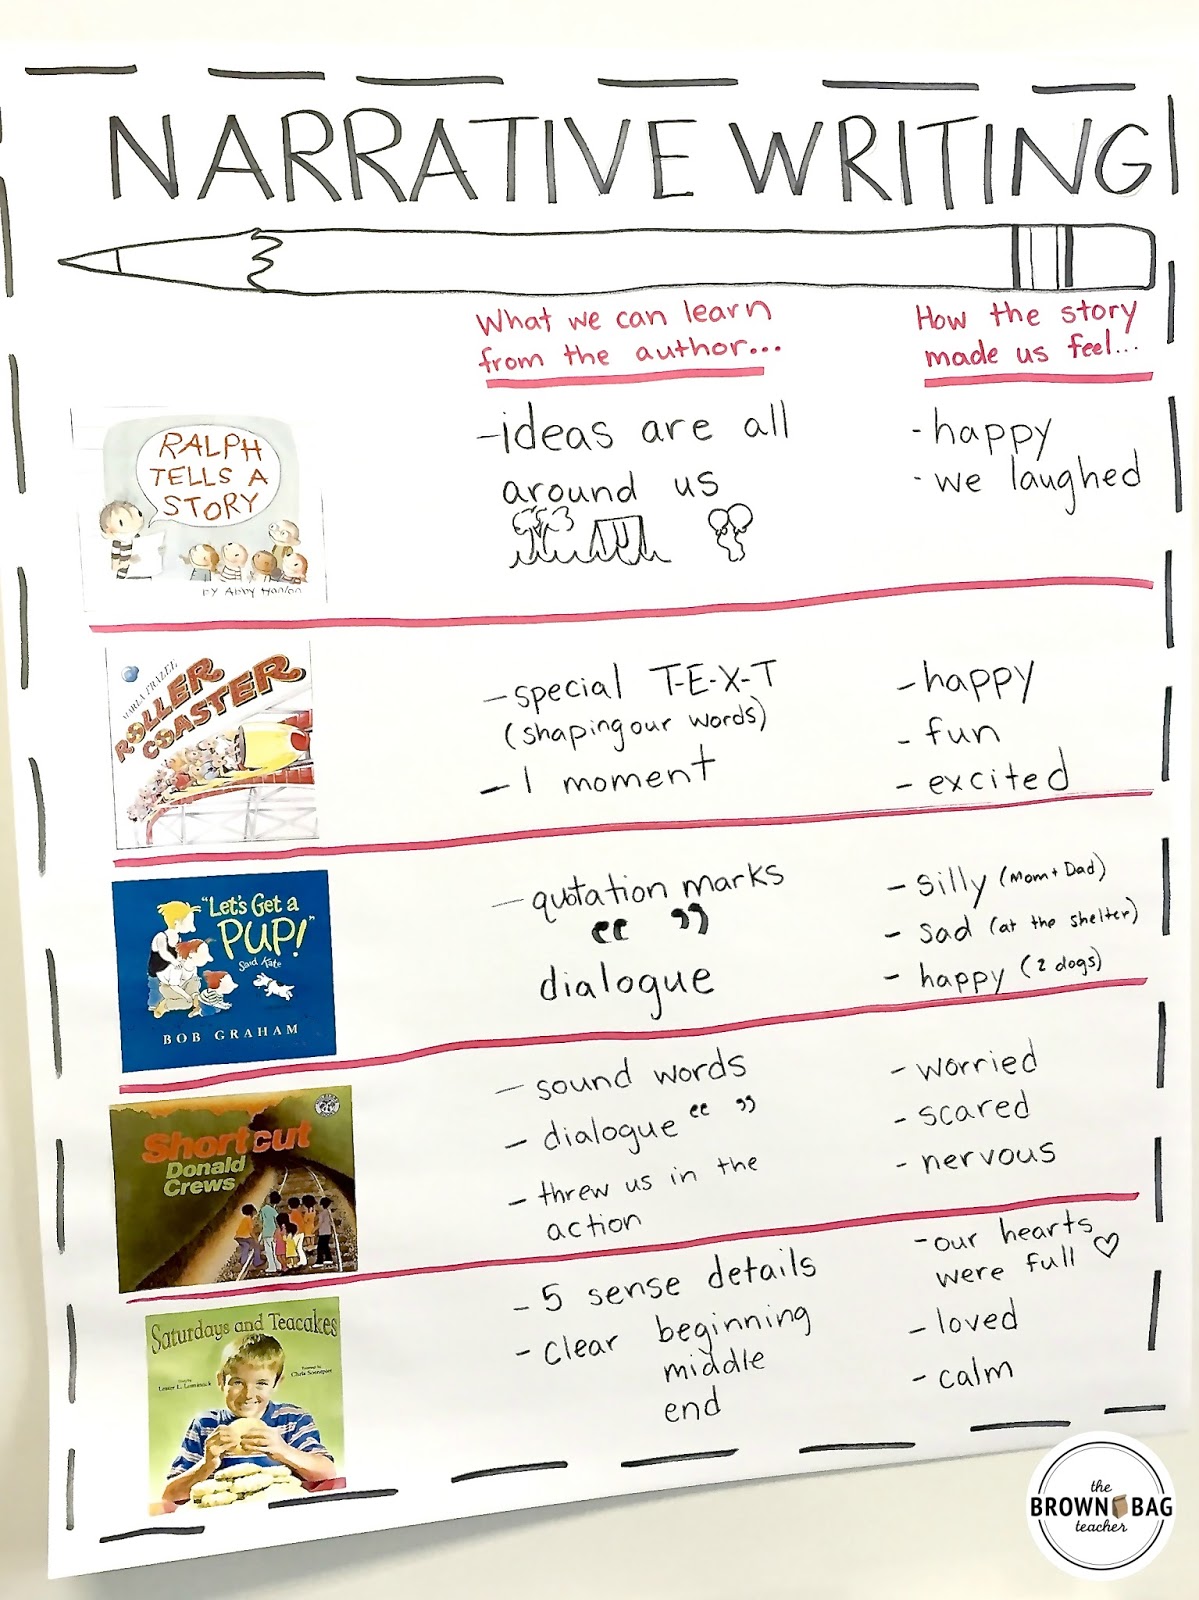 NARRATIVE WRITING
What we can learn
from the author...
How the story
made us feel...
RALPH
TELLS A
STORY
by Abby Hanlon
-ideas are all
around us
-happy
-we laughed
MARLA FRAZEE
ROLLER
COASTER
-special T-E-X-T
(shaping our words)
-1 moment
-happy
-fun
-excited
"Let's Get a
PUP!"
Said Kate
BOB GRAHAM
-quotation marks
“ ”
dialogue
-silly (Mom + Dad)
-sad (at the shelter)
-happy (2 dogs)
Shortcut
Donald
Crews
-sound words
-dialogue “ ”
-threw us in the
action
-worried
-scared
-nervous
Saturdays and Teacakes
Lester L. Laminack
Chris Soentpiet
-5 sense details
-clear beginning
middle
end
-our hearts
were full ♡
-loved
-calm
the
BROWN BAG
teacher